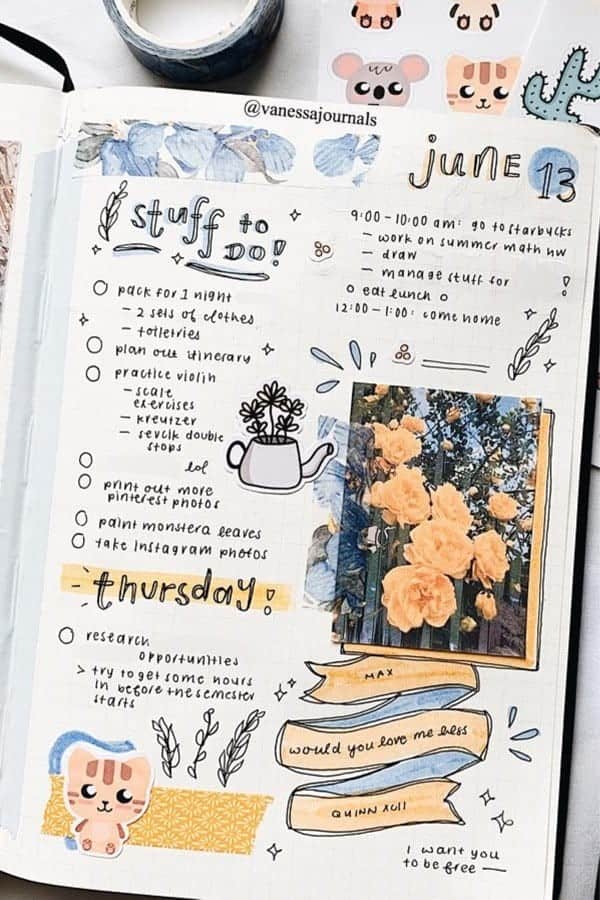 @vanessajournals
JUNE 13
stuff to
DO!
pack for 1 night
- 2 sets of clothes
- toiletries
plan out itinerary
practice violin
- scale
exercises
- kreutzer
- sevcik double
stops
lol
print out more
pinterest photos
paint monstera leaves
take instagram photos
thursday!
research
opportunities
> try to get some hours
in before the semester
starts
9:00 - 10:00 am: go to starbucks
- work on summer math hw
- draw
- manage stuff for
eat lunch
12:00 - 1:00: come home
MAX
would you love me less
QUINN XCII
I want you
to be free —